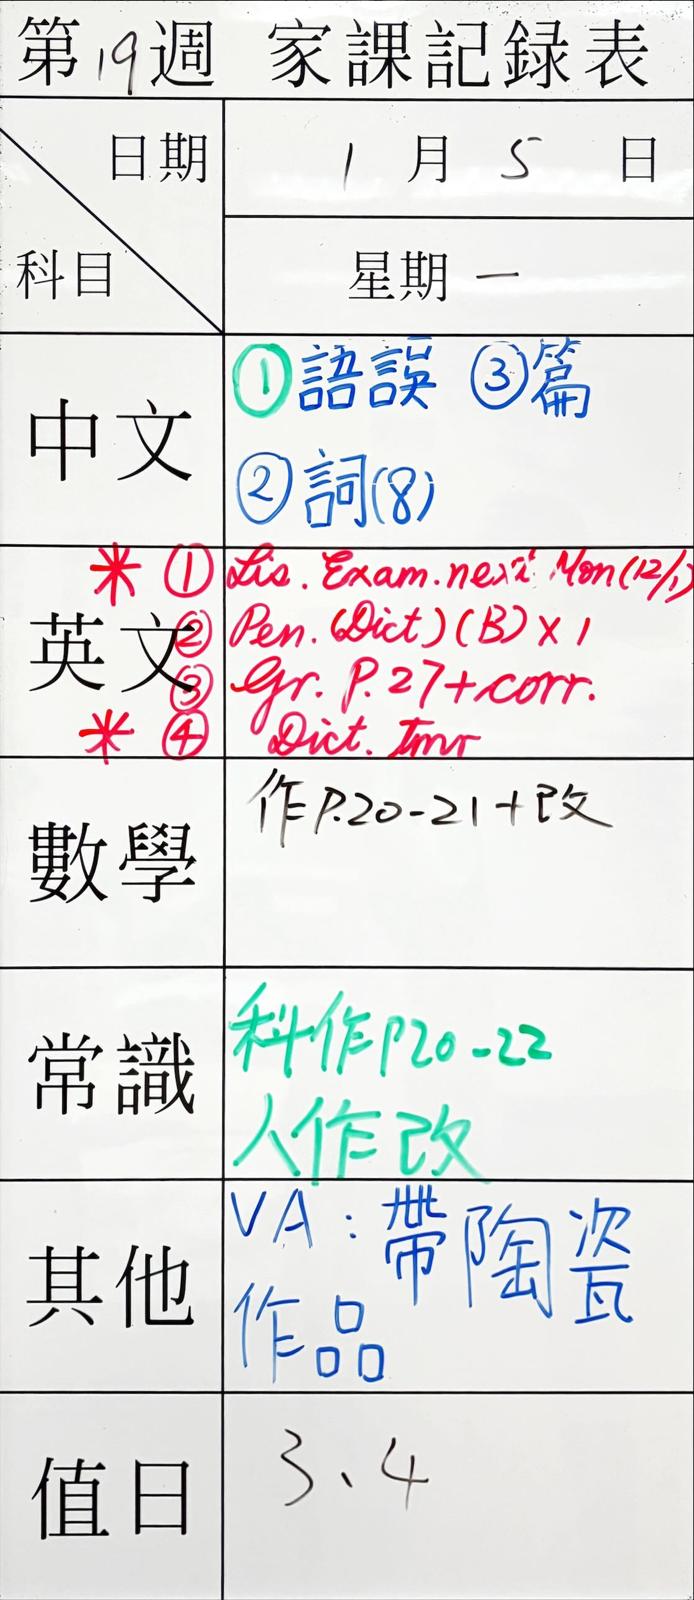 第19週 家課記録表
日期 1月5日
科目 星期一
中文 ①語誤 ③篇
②詞(8)
英文 * ① Lis. Exam. next Mon(12/1)
② Pen. (Dict) (B) x 1
③ Gr. P. 27 + corr.
* ④ Dict. Tmr
數學 作P.20-21+改
常識 科作P20-22
人作改
其他 VA:帶陶瓷
作品
值日 3、4